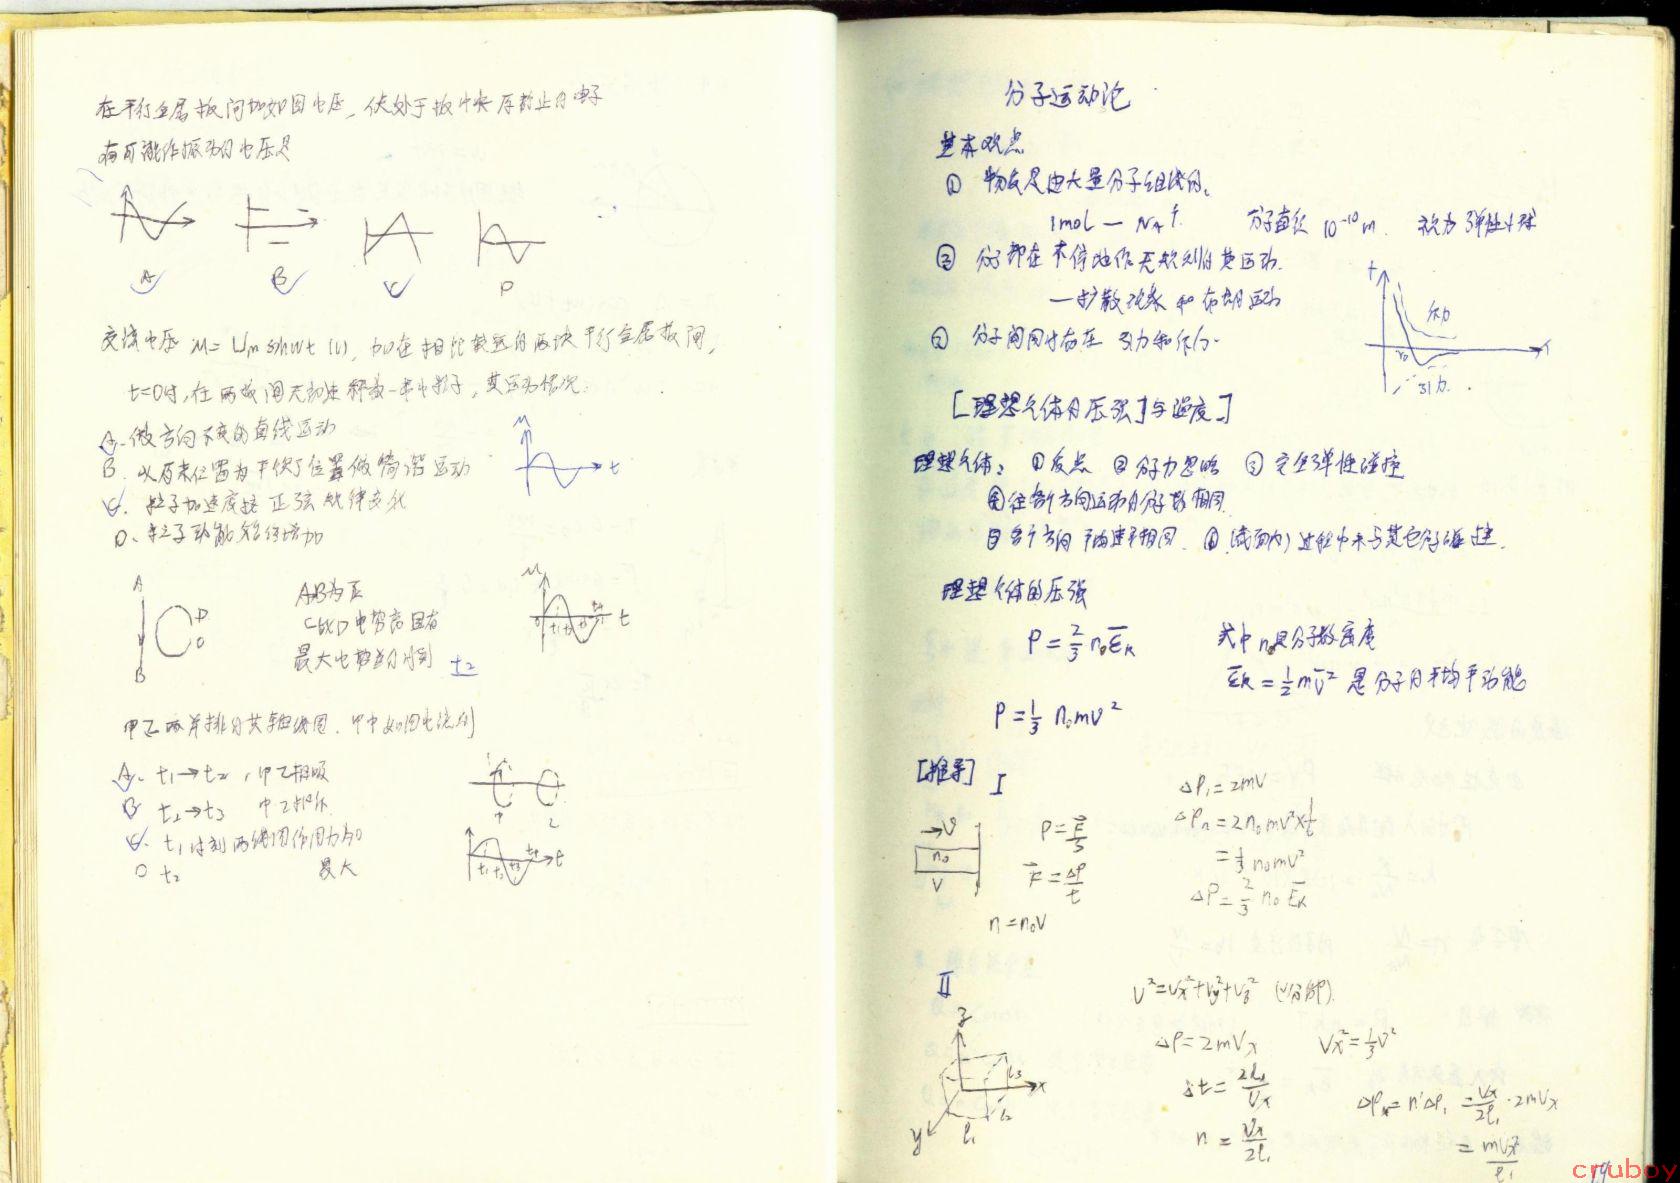 在平行金属板间加如图电压，使处于板中央原静止的电子
有可能作振动的电压是
A B C D
交流电压 u = Um sinωt (V)，加在相距较远的两块平行金属板间，
t=0时，在两板间无初速释放一带电粒子，其运动情况：
A. 做方向不变的直线运动
B. 以原来位置为平衡位置做简谐运动
C. 粒子加速度按正弦规律变化
D. 粒子动能始终增加
u t
A B C D
AB为正
C比D电势高且有
最大电势差的时刻 t2
u 0 t1 t2 t3 t4 t
甲乙两并排的共轴线圈．甲中如图电流时
A. t1→t2 ，甲乙相吸
B t2→t3 甲乙相斥
C. t1时刻两线圈作用力为0
D t2 最大
甲 乙
t1 t2 t3 t4 t
分子运动论
基本观点
① 物质是由大量分子组成的。
1mol — NA个. 分子直径 10⁻¹⁰ m. 视为弹性小球
② 分子都在不停地作无规则的热运动.
—扩散现象和布朗运动
③ 分子间同时存在引力和斥力.
f 斥力 r0 r 引力
[理想气体的压强]与温度]
理想气体： ①质点 ②分子力忽略 ③完全弹性碰撞
④往各个方向运动的分子数相同
⑤各个方向平均速率相同. ⑥ (盒内) 过程中未与其它分子碰撞.
理想气体的压强
P = 2/3 n₀ĒK 式中 n₀是分子数密度
ĒK = 1/2 mv̄² 是分子的平均平动能
P = 1/3 n₀mv²
[推导] I
→v n₀ V
P = F̄/S
F̄ = ΔP/t
n = n₀V
ΔP₁ = 2mV
ΔPn = 2n₀mv²×1/6
= 1/3 n₀mv²
ΔP = 2/3 n₀ĒK
II
z x y l1 l2 l3
V² = Vx²+Vy²+Vz²
ΔP = 2mVx Vx² = 1/3 V²
Δt = 2l₁/Vx
n = Vx/2l₁
ΔPx = n'ΔP₁ = Vx/2l₁ · 2mVx
= mVx²/l₁
19
cruboy